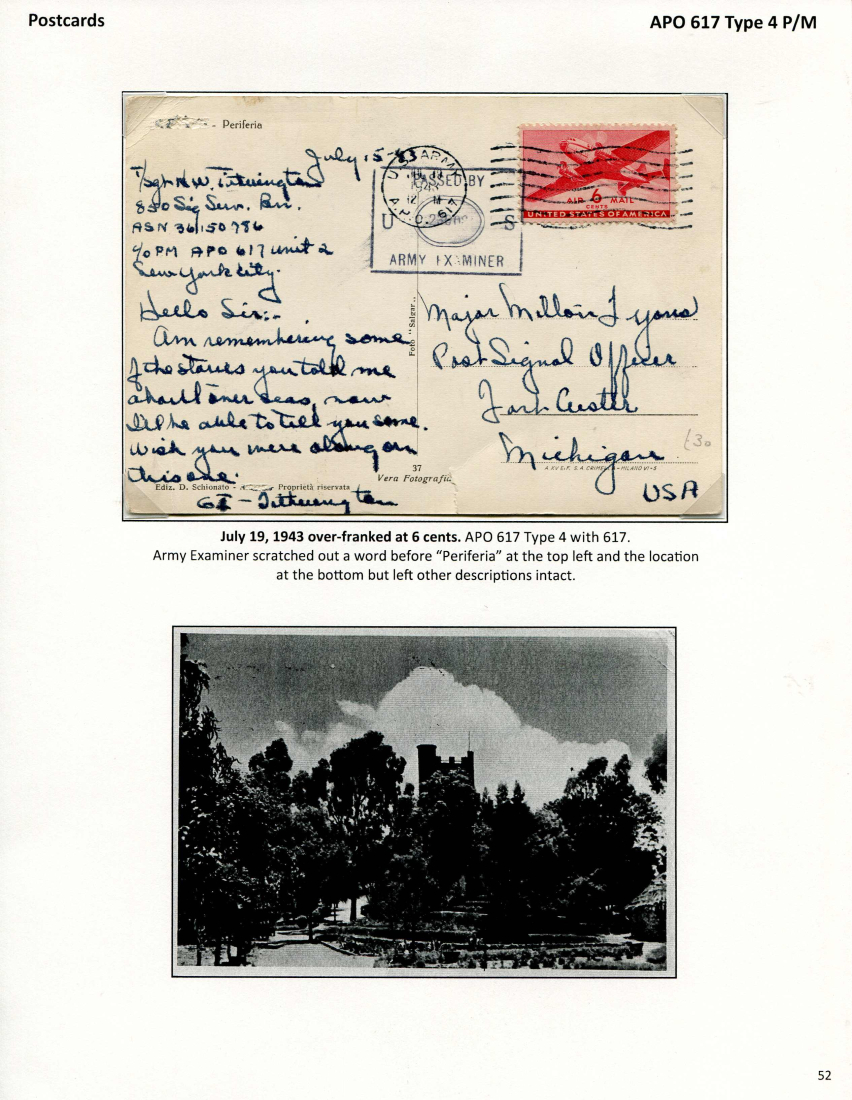 Postcards
APO 617 Type 4 P/M
- Periferia
July 15-43
T/Sgt N.W. Titherington
850 Sig Serv. Bn.
ASN 36150786
c/o PM APO 617 unit 2
New York City.
Hello Sir:-
Am remembering some
of the stories you told me
about over seas, now
I'll be able to tell you some.
Wish you were along on
this one.
GI - Titherington
U.S. ARMY
12 M
A.P.O. 617
PASSED BY
U S
ARMY EXAMINER
AIR 6 MAIL
CENTS
UNITED STATES OF AMERICA
Foto "Salgar"
Major Milton J Lyons
Post Signal Officer
Fort Custer
Michigan
USA
£30
37
Vera Fotografia
A XV S.F. S.A. CRIMELLA - MILANO VI-5
Ediz. D. Schionato - A Proprietà riservata
July 19, 1943 over-franked at 6 cents. APO 617 Type 4 with 617.
Army Examiner scratched out a word before “Periferia” at the top left and the location
at the bottom but left other descriptions intact.
52